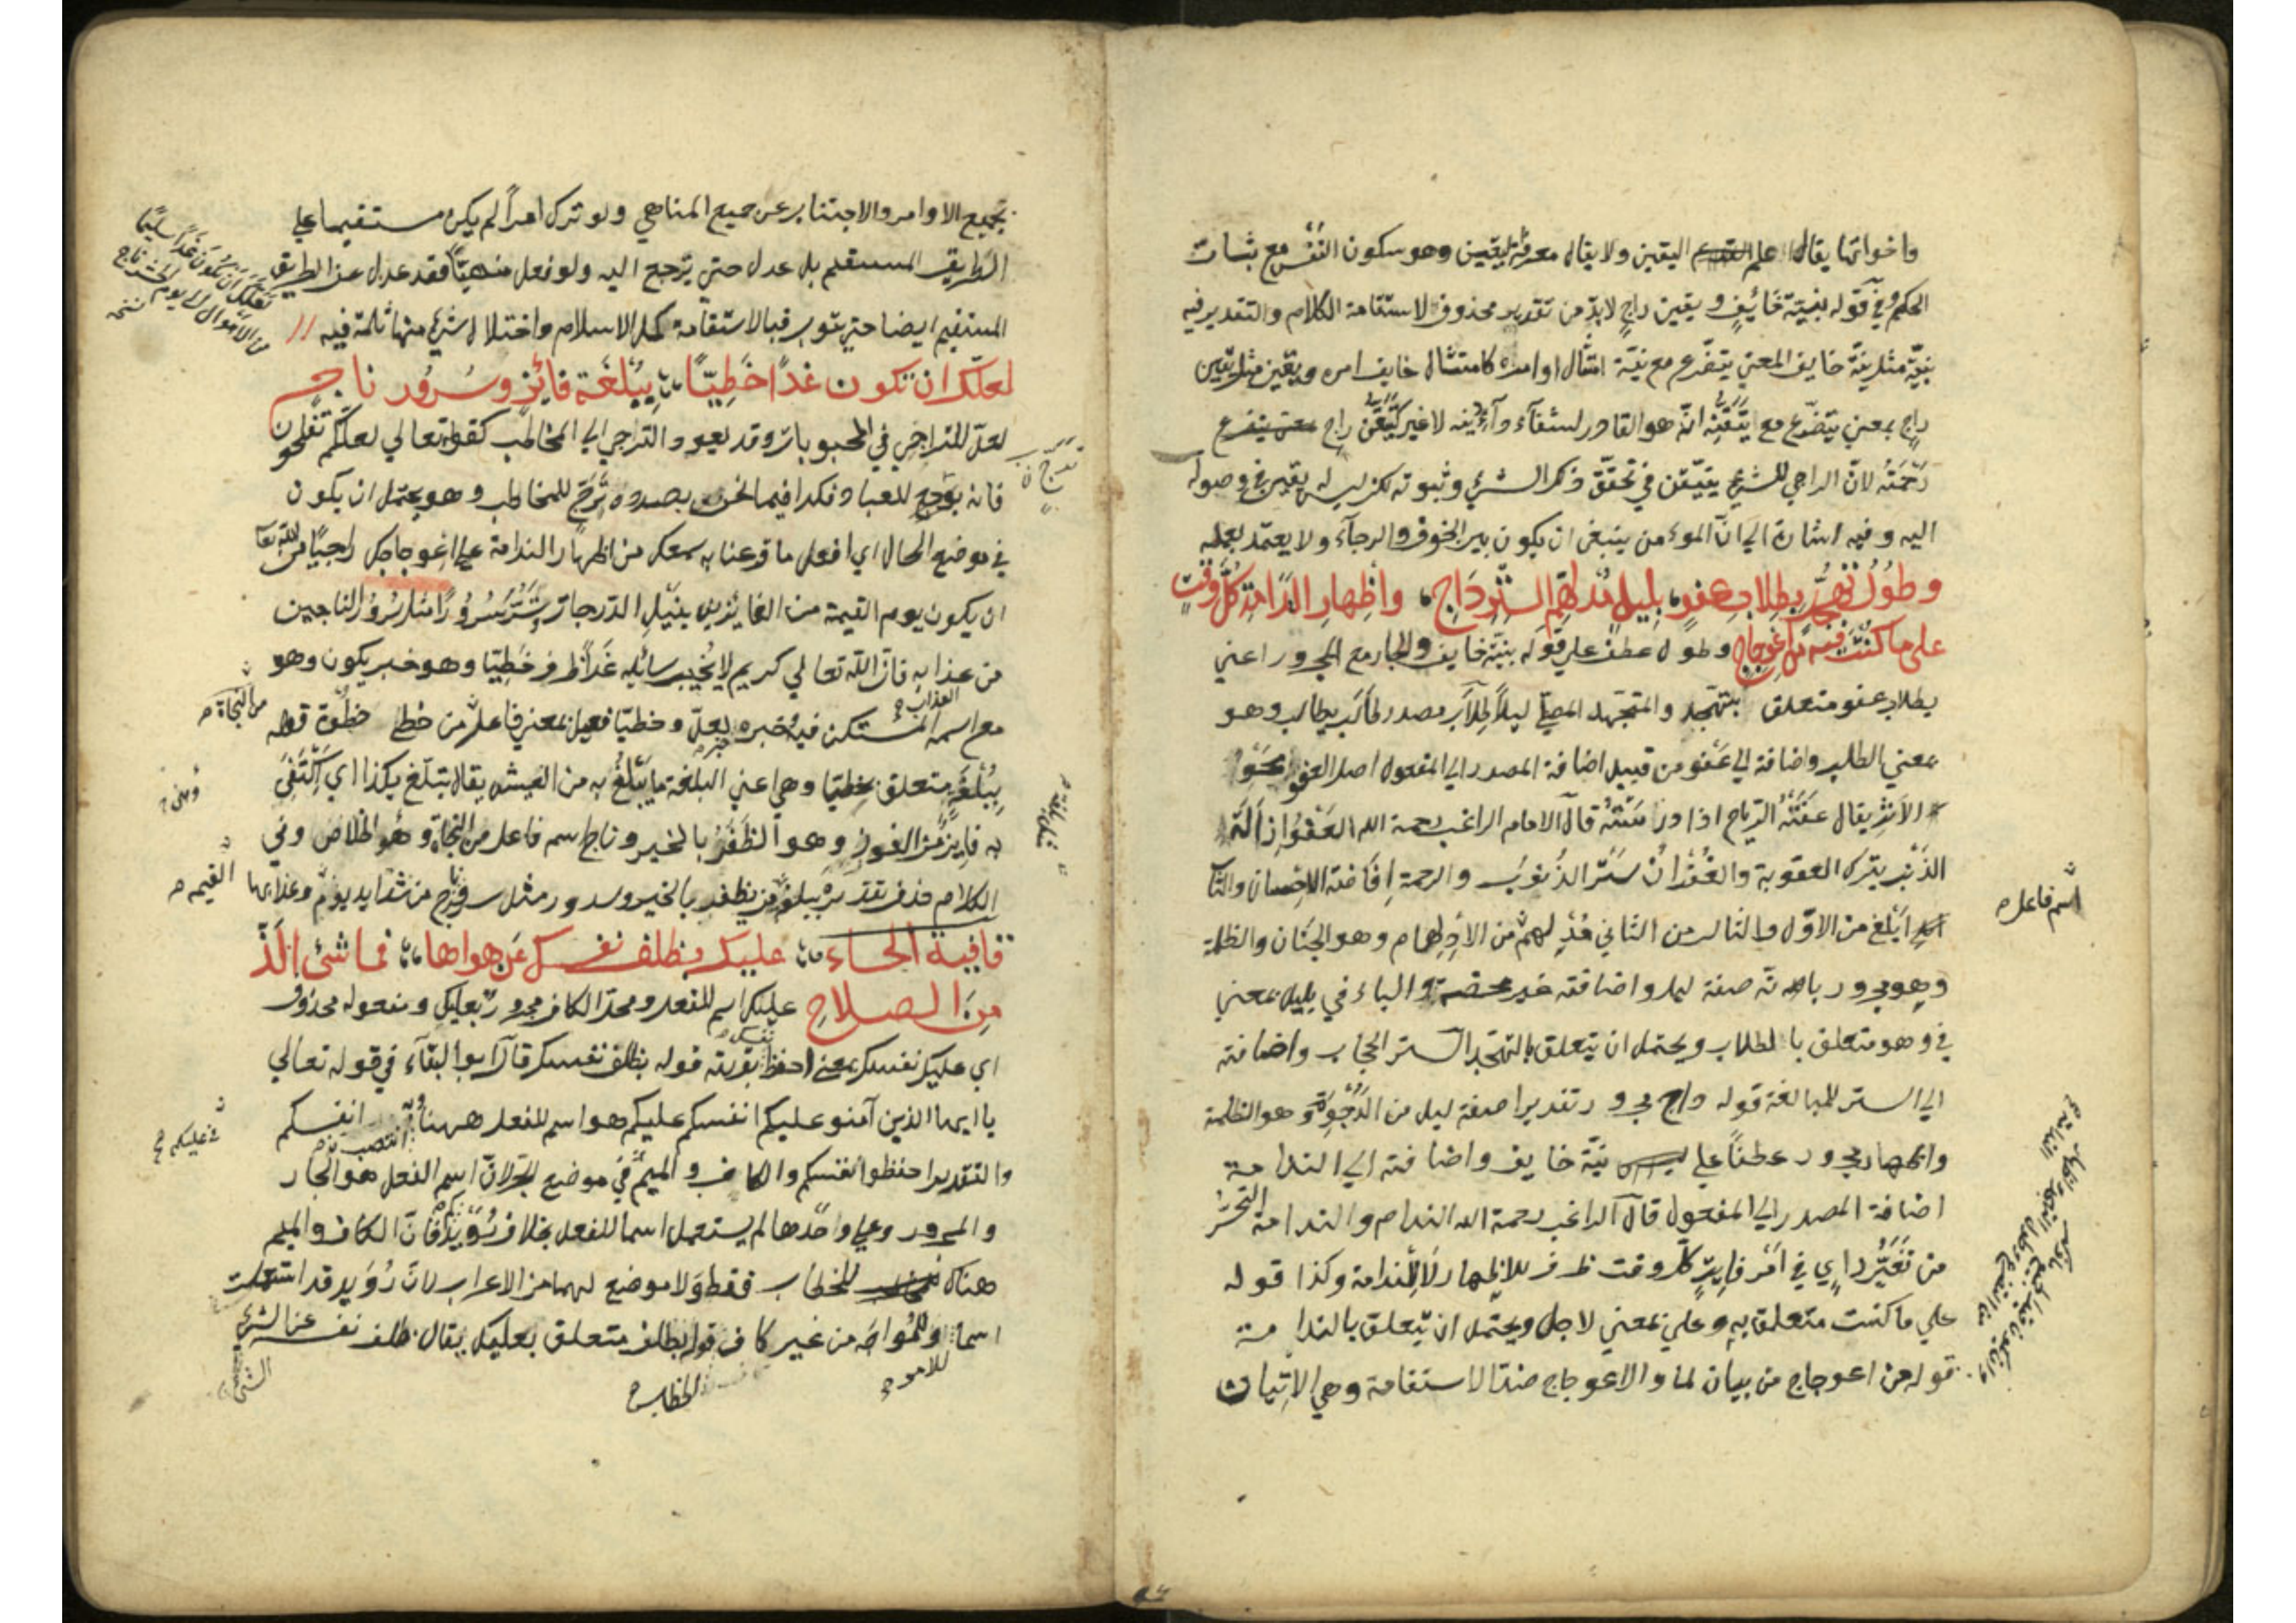 واخواتها يقال علم اليقين ولا يقال معرفة اليقين وهو سكون النفس مع ثبات
الحكم وفي قوله بنية خائف ويقين راج لا بد من تقدير محذوف لاستقامة الكلام والتقدير فيه
بنية مثل نية خايف المعني يتضرع مع نية امتثال اوامره كامتثال خايف امره ويقين مثل يقين
راج بمعني يتضرع مع تيقنه انه هو القادر لا غير كتيقن راج
رحمته لان الراجي للشيء يتيقن في تحقق ذكر الشيء وثبوته لكن ليس له يقين في وصوله
اليه وفيه اشارة الي ان المؤمن ينبغي ان يكون بين الخوف والرجاء ولا يعتمد بعمله
وطول تهجد بطلاب عفو، بليل مدلهم الستر داج، واظهار الندامة كل وقت
علي ما كنت فيه من اعوجاج وطول عطف علي قوله بنية خايف والجار مع المجرور اعني
بطلاب عفو متعلق بتهجد والمتهجد المصلي ليلا طلاب مصدر طالب يطالب وهو
بمعني الطلب واضافته الي عفو من قبيل اضافة المصدر الي المفعول اصل العفو محو
الاثر يقال عفته الرياح اذا درسته قال الامام الراغب رحمة الله العفو ازالة
الذنب بترك العقوبة والغفران ستر الذنوب والرحمة افاضة الاحسان والثاني
ابلغ من الاول والثالث من الثاني مدلهم من الادلهمام وهو الجنان والظلمة
وهو مجرور بانه صفة ليل واضافته غير محضة والباء في بليل بمعني
في وهو متعلق بالطلاب ويحتمل ان يتعلق بالتهجد الستر الحجاب واضافته
الي الستر للمبالغة قوله داج مجرور تقديرا صفة ليل من الدجوة وهو الظلمة
واظهار مجرور عطفا علي نية خايف واضافته الي الندامة
اضافة المصدر الي المفعول قال الراغب رحمة الله الندم والندامة التحسر
من تغير راي في امر فايت كل وقت ظرف للاظهار او للندامة وكذا قوله
علي ما كنت متعلق به وعلي بمعني لاجل ويحتمل ان يتعلق بالندامة
قوله من اعوجاج من بيان لما والاعوجاج ضد الاستقامة وهي الاتيان
اسم فاعل
بجميع الاوامر والاجتناب عن جميع المناهي ولو ترك امرا لم يكن مستقيما علي
الطريق المستقيم بل عدل حتي يرجع اليه ولو فعل منهيا فقد عدل عن الطريق
المستقيم ايضا حتي يتوب فبالاستقامة كمل الاسلام واختلال شيء منها ثلمة فيه
لعلك ان تكون غدا خطيا، ببلغة فائز وسرور ناج
لعل للتراجي في المحبوبات وقد يعود الترجي الي المخاطب كقوله تعالي لعلكم تفلحون
فانه يرجع للعباد فكذا فيما نحن بصدده ترج للمخاطب وهو يحتمل ان يكون
في موضع الحال اي افعل ما قرعنا به سمعك من اظهار الندامة علي اعوجاجك راجيا من الله تعالي
ان يكون يوم القيمة من الفائزين بنيل الدرجات وتسر سرورا مثل سرور الناجين
من عذابه فان الله تعالي كريم لا يخيب سائله غدا ظرف خطيا وهو خبر يكون وهو
مع اسمه المستكن فيه خبره لعل وخطيا فعيل بمعني فاعل من خطي خطوة قوله
ببلغة متعلق بخطيا وهي اعني البلغة ما يتبلغ به من العيش يقال تبلغ بكذا اي اكتفي
به فايز من الفوز وهو الظفر بالخير وناج اسم فاعل من النجاة وهو الخلاص وفي
الكلام حذف تقديره ببلغة من يظفر بالخير وسرور مثل سرور ناج من شدايد يوم وعذابها
قافية الحاء، عليك بظلف نفسك عن هواها، فما شيء الذ
من الصلاح عليك اسم للفعل ومحل الكاف مجرور بعليك ومفعوله محذوف
اي عليك نفسك بمعني احفظ بقرينة قوله بظلف نفسك قال ابو البقاء في قوله تعالي
يا ايها الذين آمنو عليكم انفسكم عليكم هو اسم للفعل ههنا انفسكم
والتقدير احفظوا انفسكم والكاف والميم في موضع الجر لان اسم الفعل هو الجار
والمجرور وعلي وحدها لم يستعمل اسما للفعل بخلاف رويدكم فان الكاف والميم
هناك للخطاب فقط ولا موضع لهما من الاعراب لان رويد قد استعملت
اسما للامر المواجه من غير كاف قوله بظلف متعلق بعليك يقال ظلف نفسه عن الشيء
من النجاة
القيمه
في عليكم
الخطاب